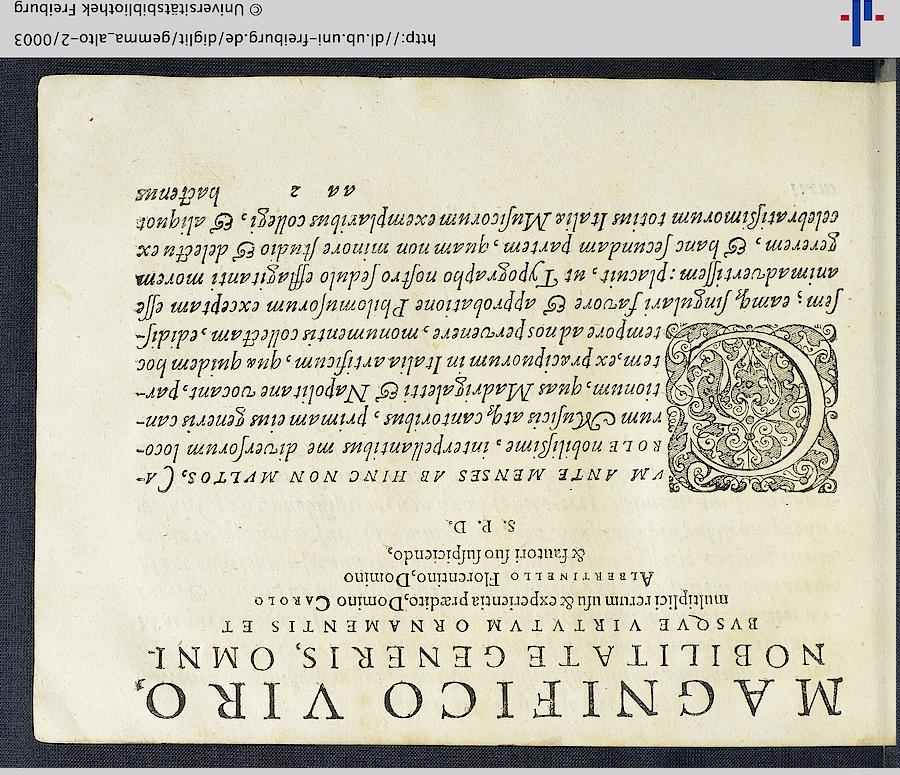 MAGNIFICO VIRO,
NOBILITATE GENERIS, OMNI-
BVSQVE VIRTVTVM ORNAMENTIS ET
multiplici rerum usu & experientia prædito, Domino CAROLO
ALBERTINELLO Florentino, Domino
& fautori suo suspiciendo,
S. P. D.
QVM ANTE MENSES AB HINC NON MVLTOS, CA-
ROLE nobilißime, interpellantibus me diversorum loco-
rum Musicis atq́; cantoribus, primam eius generis can-
tionum, quas Madrigaletti & Napolitane vocant, par-
tem, ex præcipuorum in Italia artificum, quæ quidem hoc
tempore ad nos pervenere, monumentis collectam, edidis-
sem; eamq́; singulari favore & approbatione Philomusorum exceptam esse
animadvertissem: placuit, ut Typographo nostro sedulo efflagitanti morem
gererem, & hanc secundam partem, quam non minore studio & delectu ex
celebratißimorum totius Italiæ Musicorum exemplaribus collegi, & aliquot
aa 2 hactenus
http://dl.ub.uni-freiburg.de/diglit/gemma_alto-2/0003
© Universitätsbibliothek Freiburg